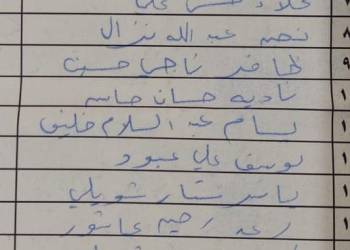 علاء حسن علي
نصير عبد الله نزال ٨
ظافر ناجي حسين ٩
نادية حسان جاسم ١
بسام عبد السلام خليف ١
يوسف علي عبود ١
ياسر ستار شويلي ١
رعد رحيم عاشور ١